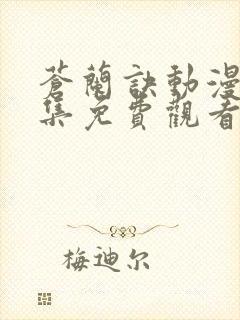 蒼蘭訣動漫
集免費觀看
梅迪尔